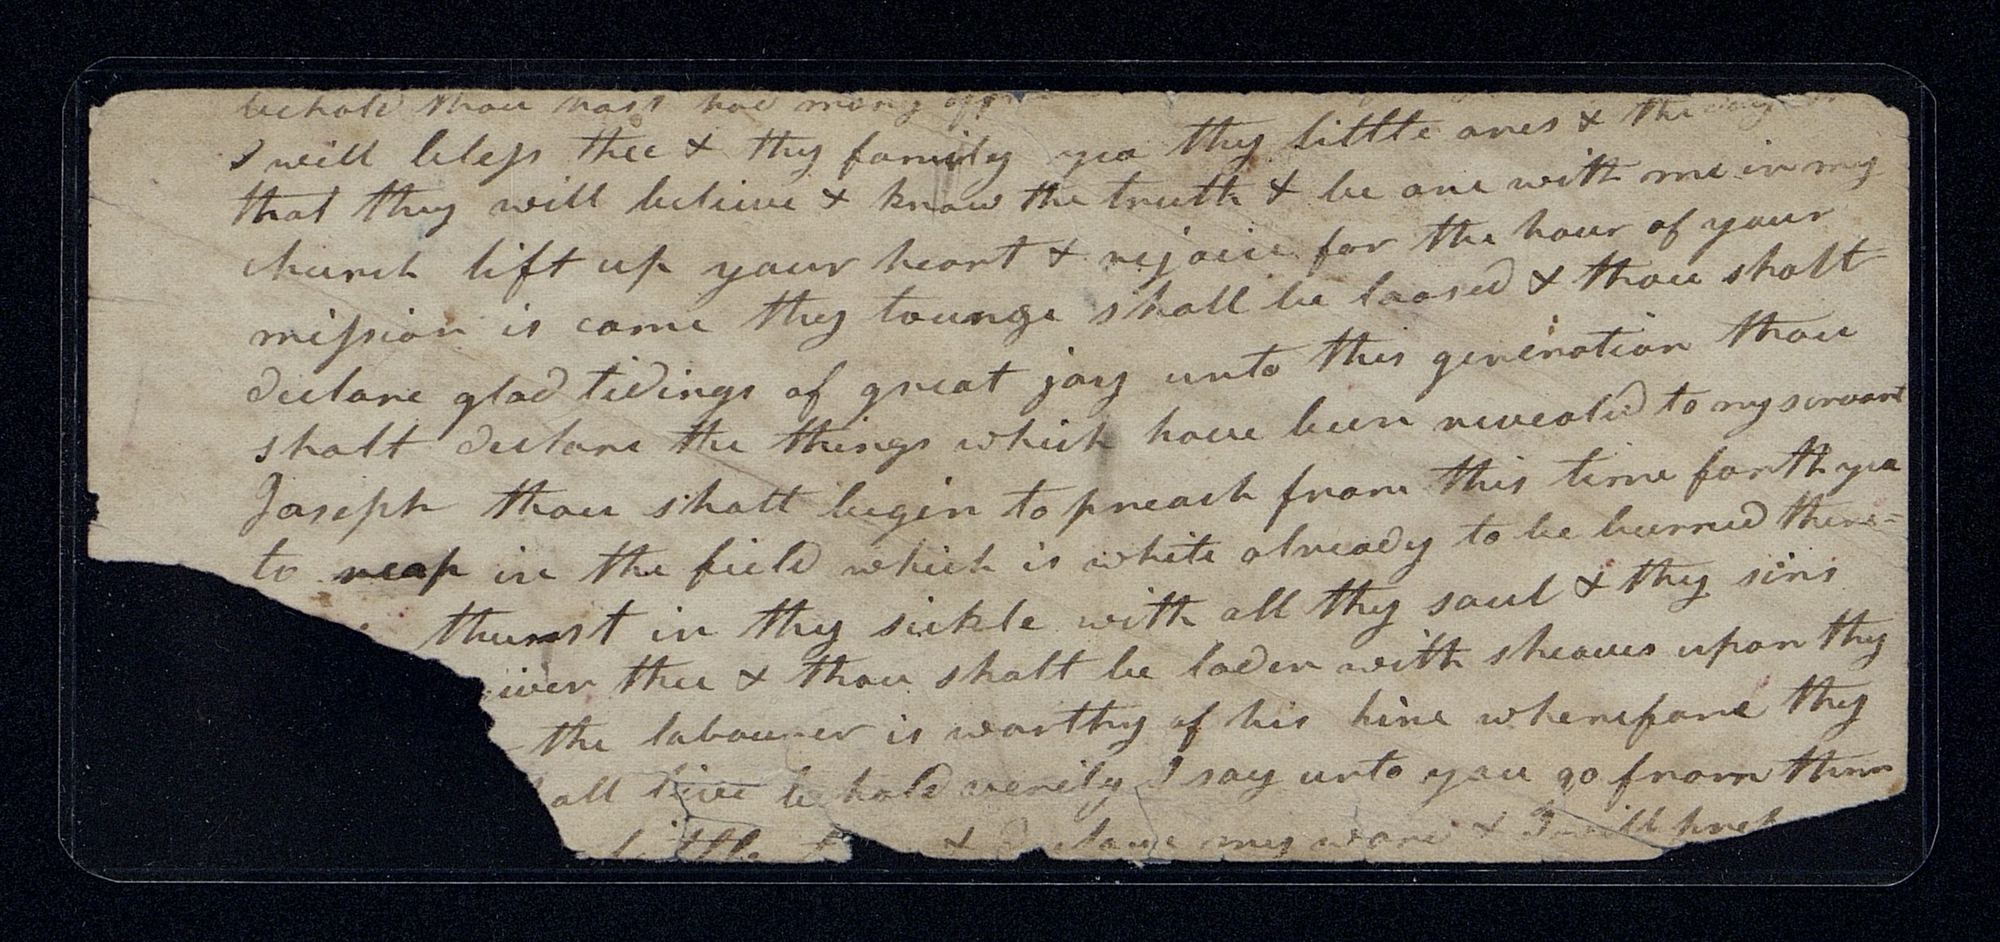 behold thou hast had many
I will bless thee & thy family yea thy little ones & the day
that they will believe & know the truth & be one with me in my
church lift up your heart & rejoice for the hour of your
mission is come thy tounge shall be loosed & thou shalt
declare glad tidings of great joy unto this generation thou
shalt declare the things which have been revealed to my servant
Joseph thou shalt begin to preach from this time forth yea
to reap in the field which is white already to be burned there=
thurst in thy sickle with all thy soul & thy sins
iven thee & thou shalt be laden with sheaves upon thy
the labourer is worthy of his hire wherefore thy
all live behold verily I say unto you go from them
little & declare my word & I will